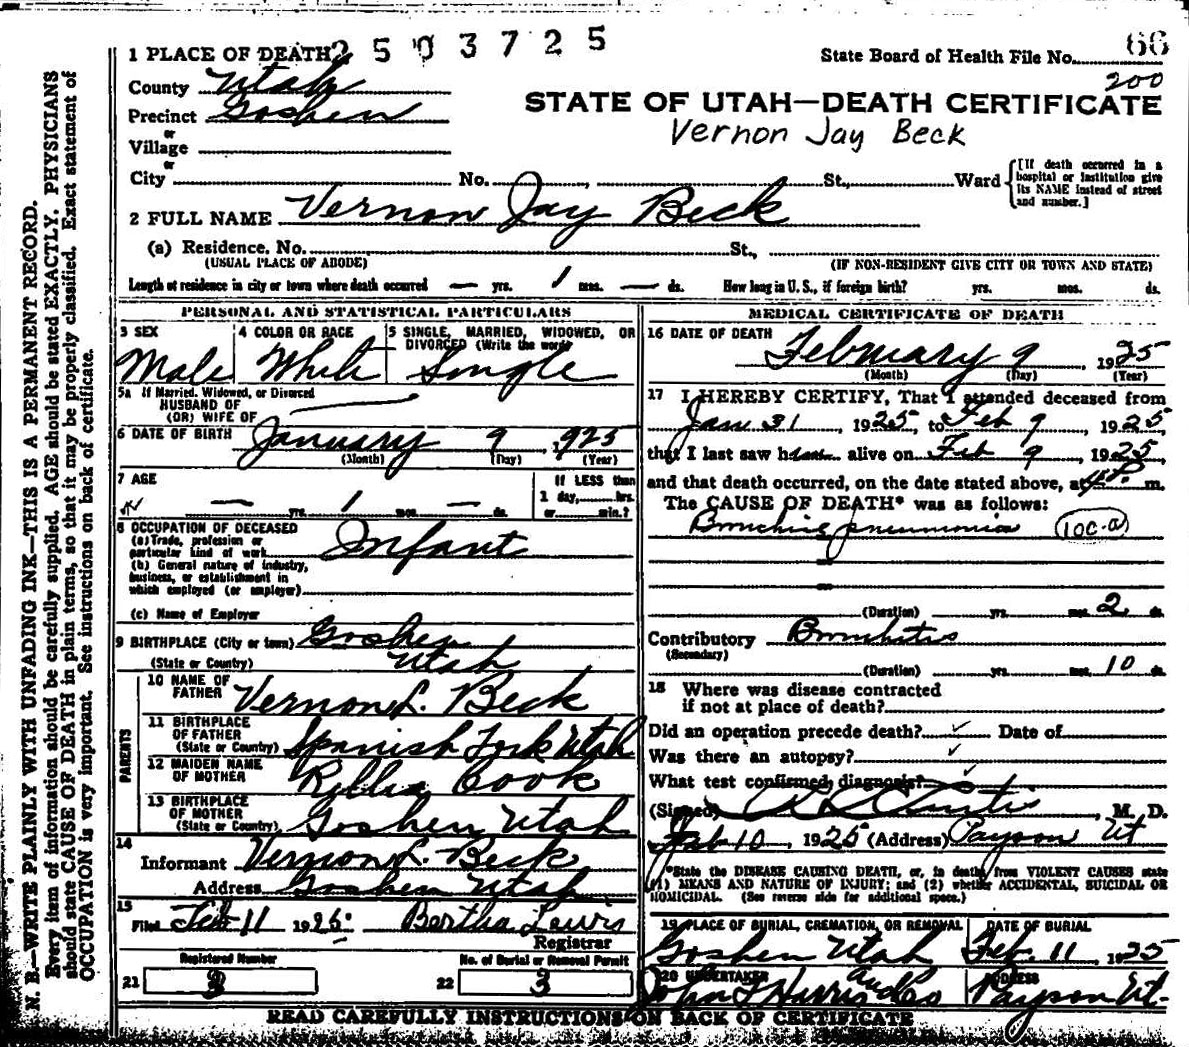 1 PLACE OF DEATH 2 5 0 3 7 2 5
State Board of Health File No. 66
200
County Utah
Precinct Goshen
or
Village
or
City No. , St., Ward
[If death occurred in a
hospital or institution give
its NAME instead of street
and number.]
STATE OF UTAH—DEATH CERTIFICATE
Vernon Jay Beck
2 FULL NAME Vernon Jay Beck
(a) Residence. No. St.,
(USUAL PLACE OF ABODE) (IF NON-RESIDENT GIVE CITY OR TOWN AND STATE)
Length of residence in city or town where death occurred — yrs. 1 mos. — ds. How long in U. S., if foreign birth? yrs. mos. ds.
PERSONAL AND STATISTICAL PARTICULARS
3 SEX 4 COLOR OR RACE 5 SINGLE, MARRIED, WIDOWED, OR
DIVORCED (Write the word)
Male White Single
5a If Married, Widowed, or Divorced
HUSBAND OF
(OR) WIFE OF
6 DATE OF BIRTH January 9, 925
(Month) (Day) (Year)
7 AGE If LESS than
1 day, hrs.
— yrs. 1 mos. — ds. or min.?
8 OCCUPATION OF DECEASED
(a) Trade, profession or
particular kind of work Infant
(b) General nature of industry,
business, or establishment in
which employed (or employer)
(c) Name of Employer
9 BIRTHPLACE (City or town) Goshen
(State or Country) Utah
PARENTS
10 NAME OF
FATHER Vernon L. Beck
11 BIRTHPLACE
OF FATHER
(State or Country) Spanish Fork Utah
12 MAIDEN NAME
OF MOTHER Rella Cook
13 BIRTHPLACE
OF MOTHER
(State or Country) Goshen Utah
14
Informant Vernon L. Beck
Address Goshen Utah
15
Filed Feb 11 1925. Bertha Lewis
Registrar
Registered Number No. of Burial or Removal Permit
21 3 22 3
MEDICAL CERTIFICATE OF DEATH
16 DATE OF DEATH
February 9 1925
(Month) (Day) (Year)
17 I HEREBY CERTIFY, That I attended deceased from
Jan 31, 1925, to Feb 9, 1925,
that I last saw him alive on Feb 9, 1925,
and that death occurred, on the date stated above, at 4 P. m.
The CAUSE OF DEATH* was as follows:
Bronchial pneumonia 100-a
(Duration) yrs. mos. 2 ds.
Contributory Bronchitis
(Secondary)
(Duration) yrs. mos. 10 ds.
18 Where was disease contracted
if not at place of death?
Did an operation precede death? ✓ Date of
Was there an autopsy? ✓
What test confirmed diagnosis? ✓
(Signed) , M. D.
Feb 10, 1925 (Address) Payson Ut
*State the DISEASE CAUSING DEATH, or, in deaths from VIOLENT CAUSES state
(1) MEANS AND NATURE OF INJURY; and (2) whether ACCIDENTAL, SUICIDAL OR
HOMICIDAL. (See reverse side for additional space.)
19 PLACE OF BURIAL, CREMATION, OR REMOVAL DATE OF BURIAL
Goshen Utah Feb. 11, 1925
20 UNDERTAKER ADDRESS
John L Harris and Co Payson Ut.
READ CAREFULLY INSTRUCTIONS ON BACK OF CERTIFICATE
N. B.—WRITE PLAINLY WITH UNFADING INK—THIS IS A PERMANENT RECORD.
Every item of information should be carefully supplied. AGE should be stated EXACTLY. PHYSICIANS
should state CAUSE OF DEATH in plain terms, so that it may be properly classified. Exact statement of
OCCUPATION is very important. See instructions on back of certificate.